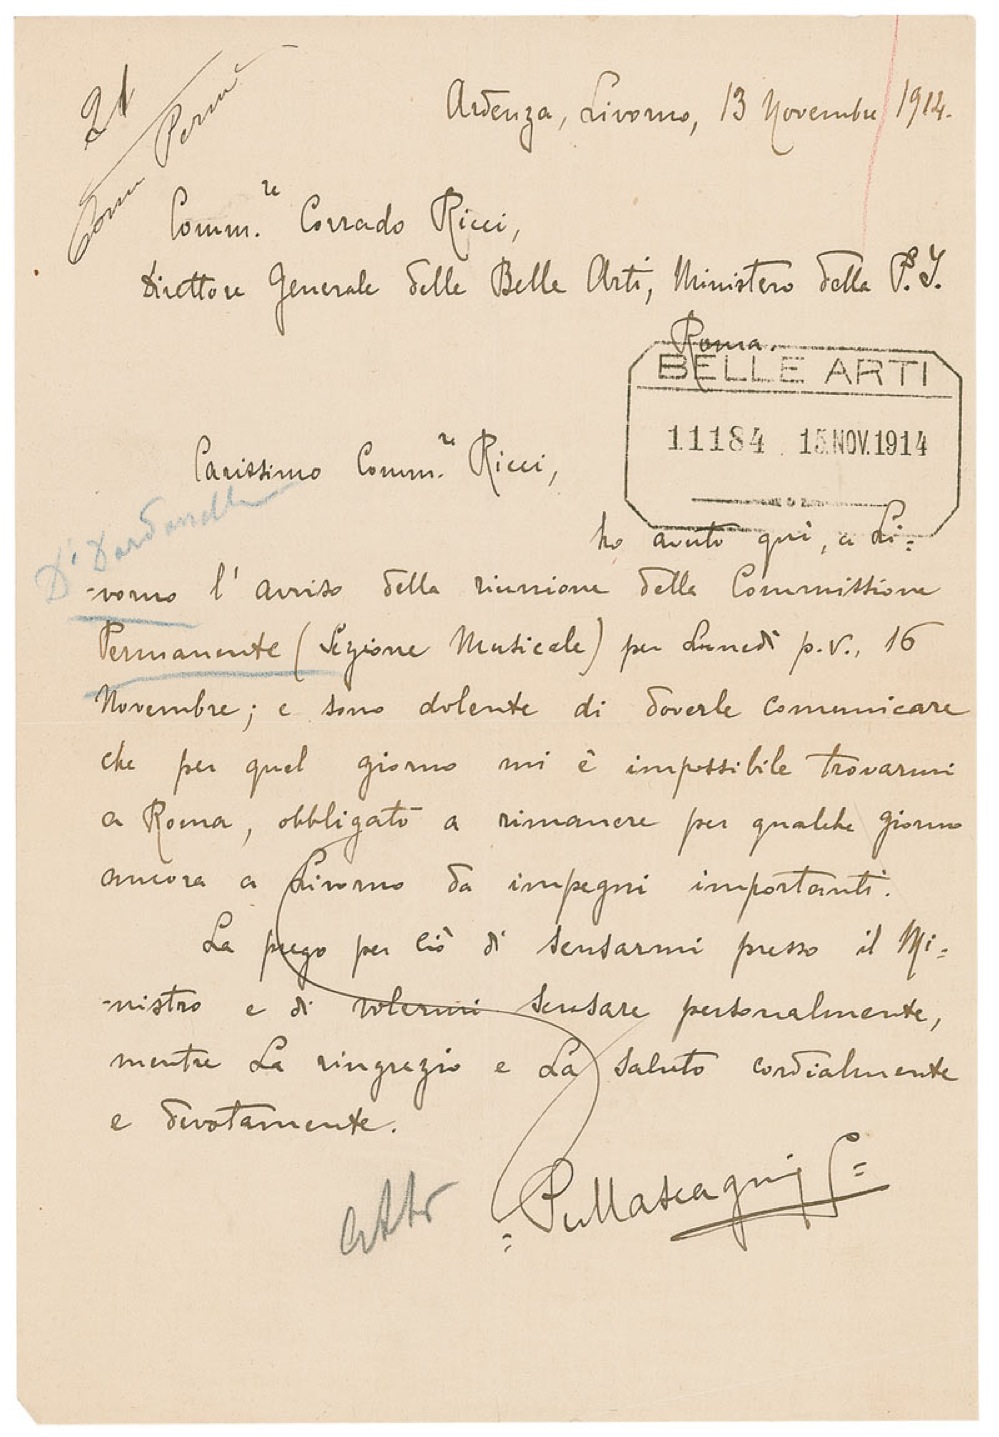 21
Comm Perm
Ardenza, Livorno, 13 Novembre 1914.
Comm.re Corrado Ricci,
Direttore Generale delle Belle Arti, Ministero della P. I.
Roma.
BELLE ARTI
11184 15 NOV. 1914
Carissimo Comm.re Ricci,
Dr Dardanelli
ho avuto qui, a Li=
-vorno l'avviso della riunione della Commissione
Permanente (Sezione Musicale) per Lunedì p.v., 16
Novembre; e sono dolente di doverle comunicare
che per quel giorno mi è impossibile trovarmi
a Roma, obbligato a rimanere per qualche giorno
ancora a Livorno da impegni importanti.
La prego per ciò di scusarmi presso il Mi=
-nistro e di volermi scusare personalmente,
mentre La ringrazio e La saluto cordialmente
e devotamente.
PMascagni
atti